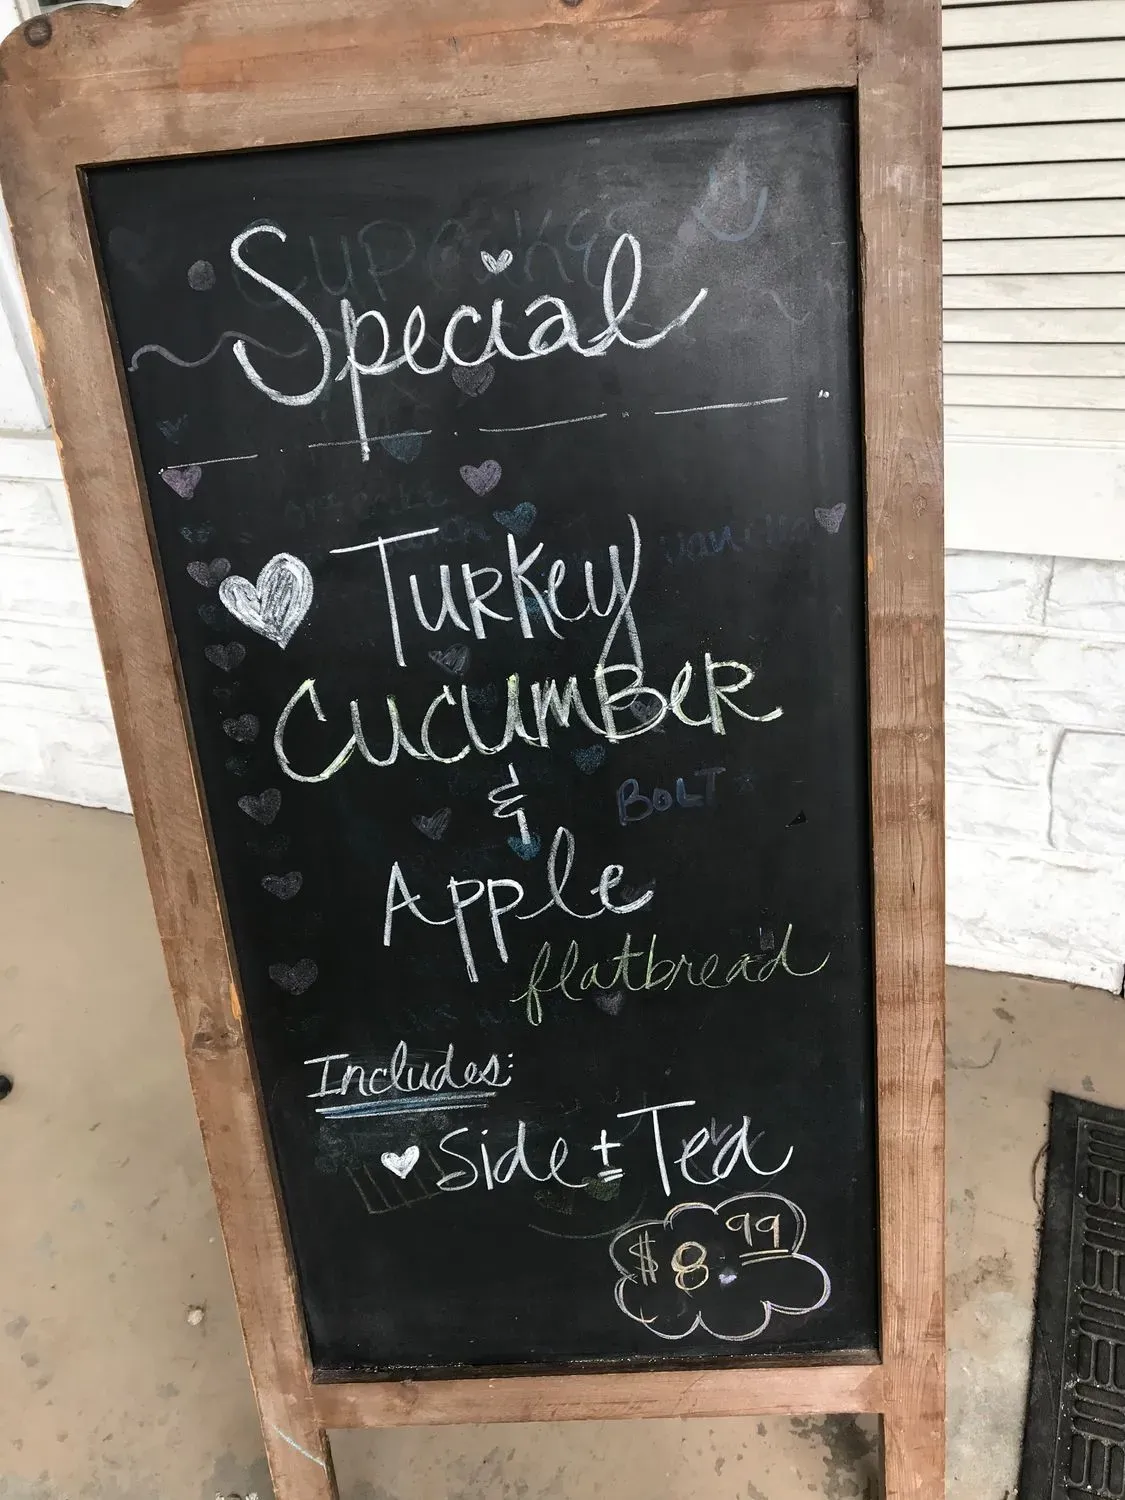 Special
Turkey
Cucumber
&
Apple
flatbread
BOLT
Includes:
Side + Tea
$8.99